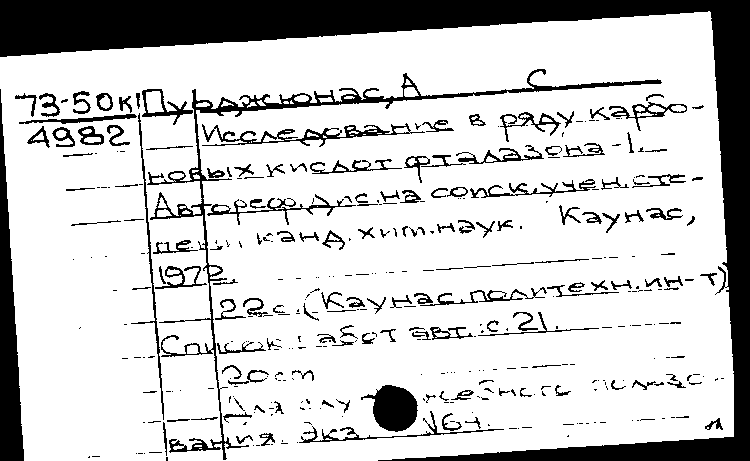 73-50к Пурджюнас, А С
4982 Исследование в ряду карбо-
новых кислот фталазона-1.
Автореф. дис. на соиск. учен. сте-
пени канд. хим. наук. Каунас,
1972.
22с. (Каунас. политехн. ин-т)
Список работ авт.: с. 21.
20 см
Для
вания. Экз. №64.